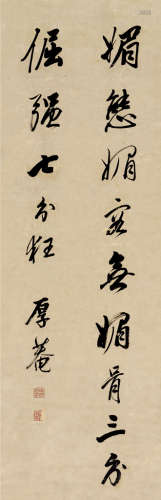 媚態媚容無媚骨三分
倔强七分狂 厚菴